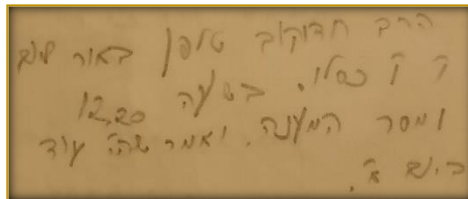 הרב חדוקוב טלפן באור ליום
ק ק כסלו. בשעה 12.20
ומסר המענה. ואמר שהי' עוד
ביום ב'.